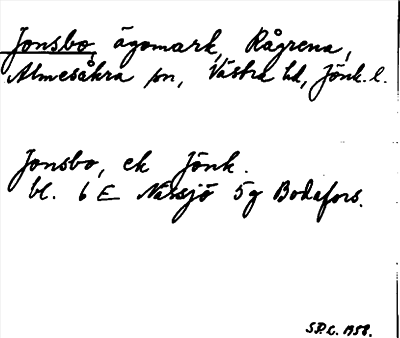 Jonsbo, ägomark, Rågrena,
Almesåkra sn, Västra hd, Jönk. l.
Jonsbo, ek Jönk.
bl. 6 E Nässjö 5g Bodafors.
S.P.C. 1958.